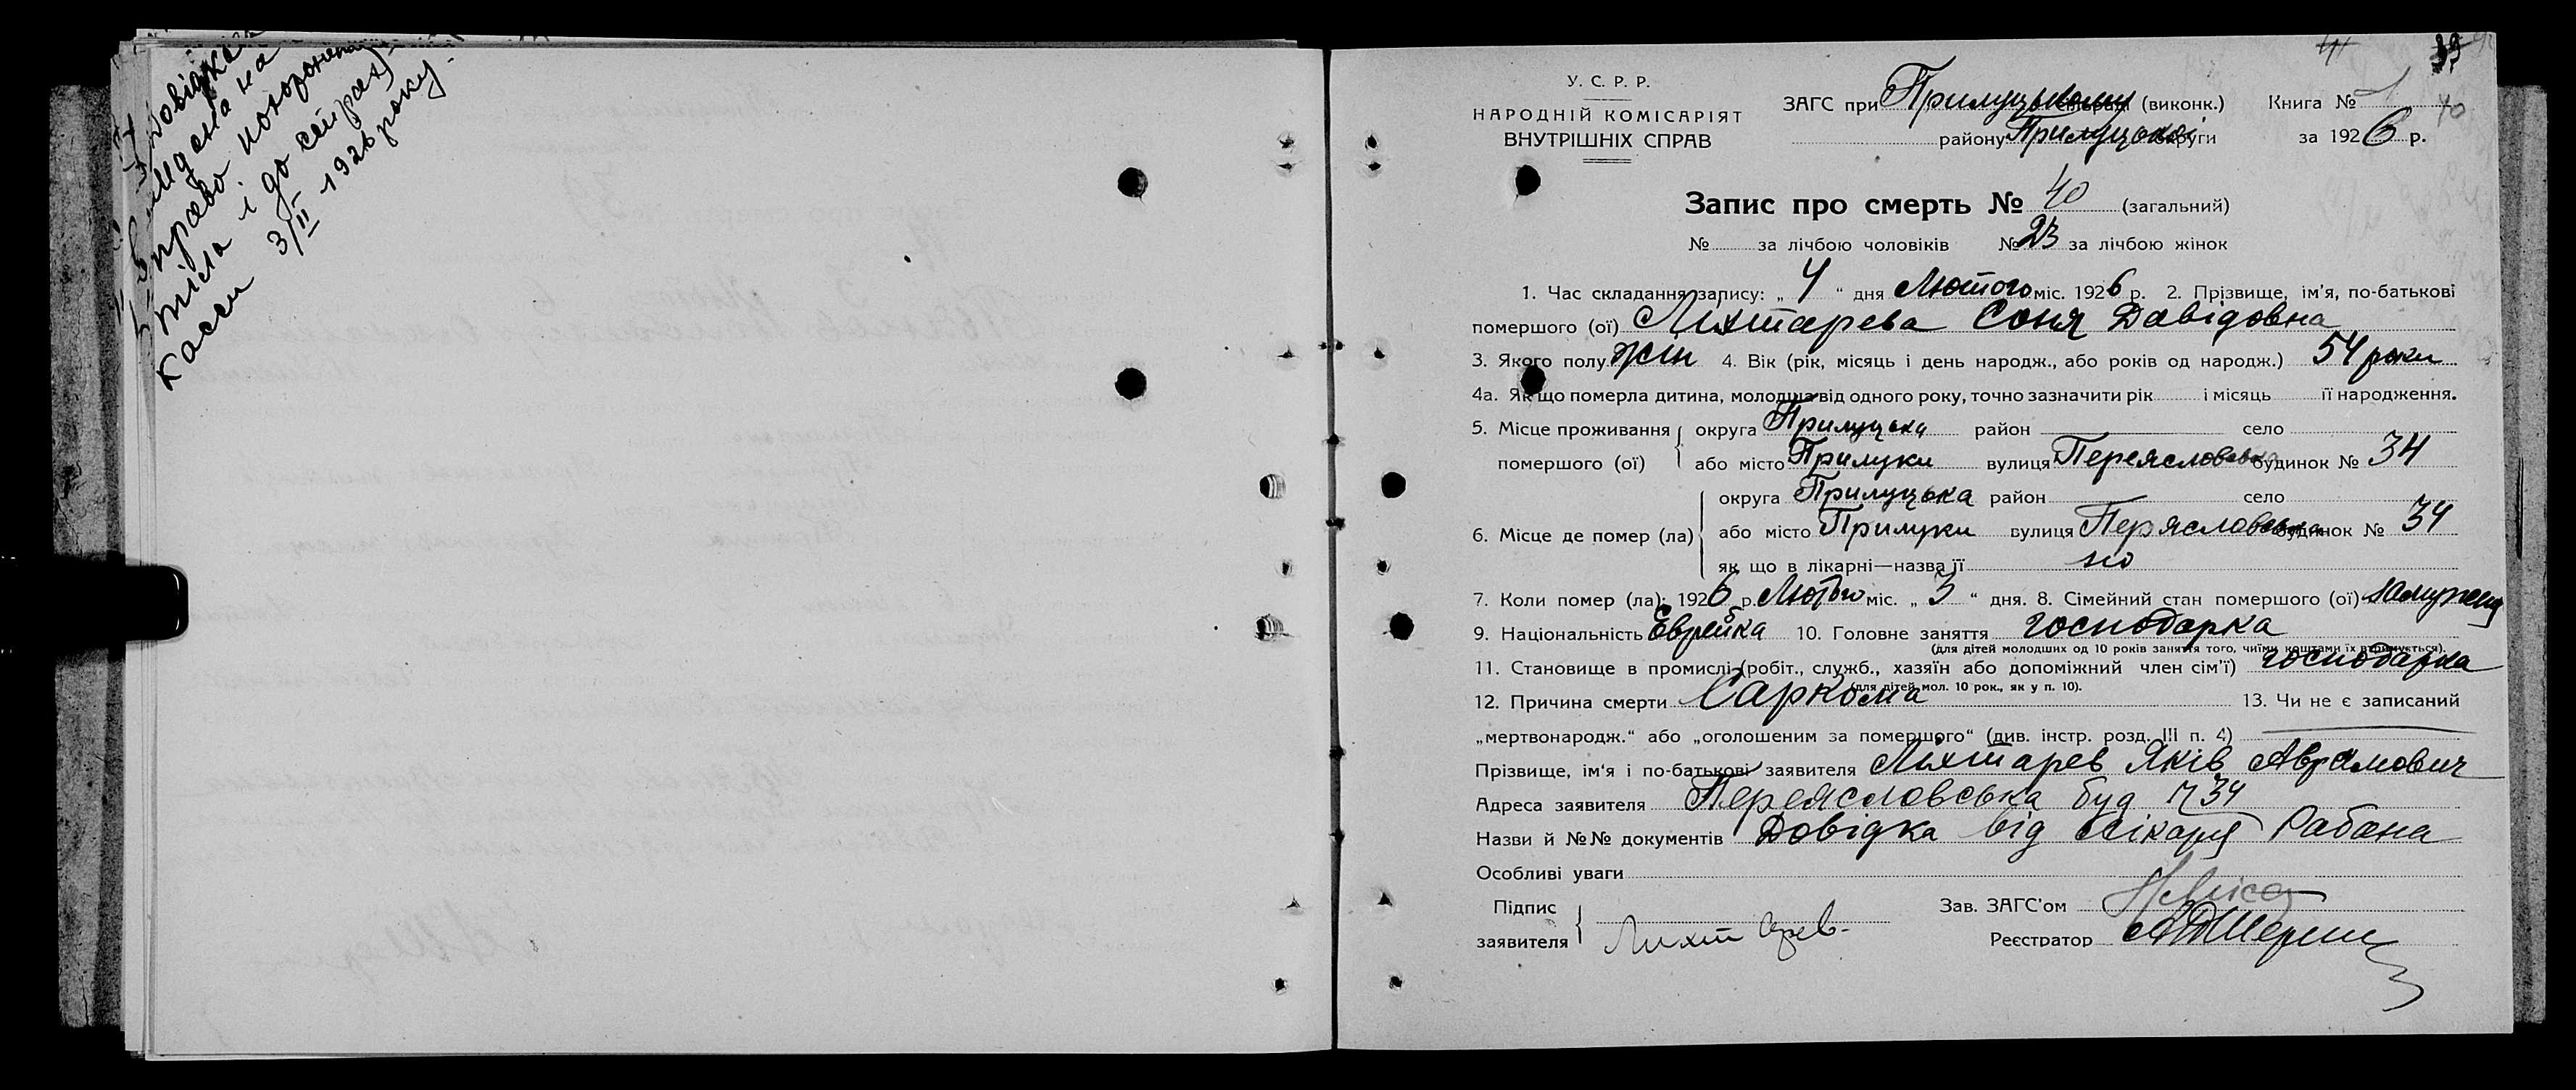 Довідка
видана на
право похоронення
тіла і до страх
касси 3/II 1926 року.
39
40
У.С.Р.Р.
НАРОДНІЙ КОМІСАРІЯТ
ВНУТРІШНІХ СПРАВ
ЗАГС при Прилуцькому (виконк.) Книга № 1
району Прилуцької округи за 1926 р.
Запис про смерть № 40 (загальний)
№ за лічбою чоловіків № 23 за лічбою жінок
1. Час складання запису: „ 4 “ дня Лютого міс. 1926 р. 2. Прізвище, ім’я, по-батькові
помершого (ої) Ліхтарева Соня Давідовна
3. Якого полу жін 4. Вік (рік, місяць і день народж., або років од народж.) 54 роки
4а. Як що померла дитина, молодша від одного року, точно зазначити рік і місяць її народження.
5. Місце проживання округа Прилуцька район село
помершого (ої) або місто Прилуки вулиця Переясловська будинок № 34
округа Прилуцька район село
6. Місце де помер (ла) або місто Прилуки вулиця Перясловська будинок № 34
як що в лікарні—назва її
7. Коли помер (ла): 1926 р. Лютого міс. „ 3 “ дня. 8. Сімейний стан помершого (ої) замужняя
9. Національність Єврейка 10. Головне заняття господарка
(для дітей молодших од 10 років заняття того, чиїми коштами їх втримується).
11. Становище в промислі (робіт., служб., хазяїн або допоміжний член сім’ї) господарка
(для дітей мол. 10 рок., як у п. 10).
12. Причина смерти Саркома 13. Чи не є записаний
„мертвонародж.“ або „оголошеним за помершого“ (див. інстр. розд. III п. 4)
Прізвище, ім’я і по-батькові заявителя Ліхтарев Яків Аврамович
Адреса заявителя Переясловська буд № 34
Назви й №№ документів Довідка від лікаря Рабана
Особливі уваги
Підпис
заявителя Лихтарев
Зав. ЗАГС’ом
Реєстратор